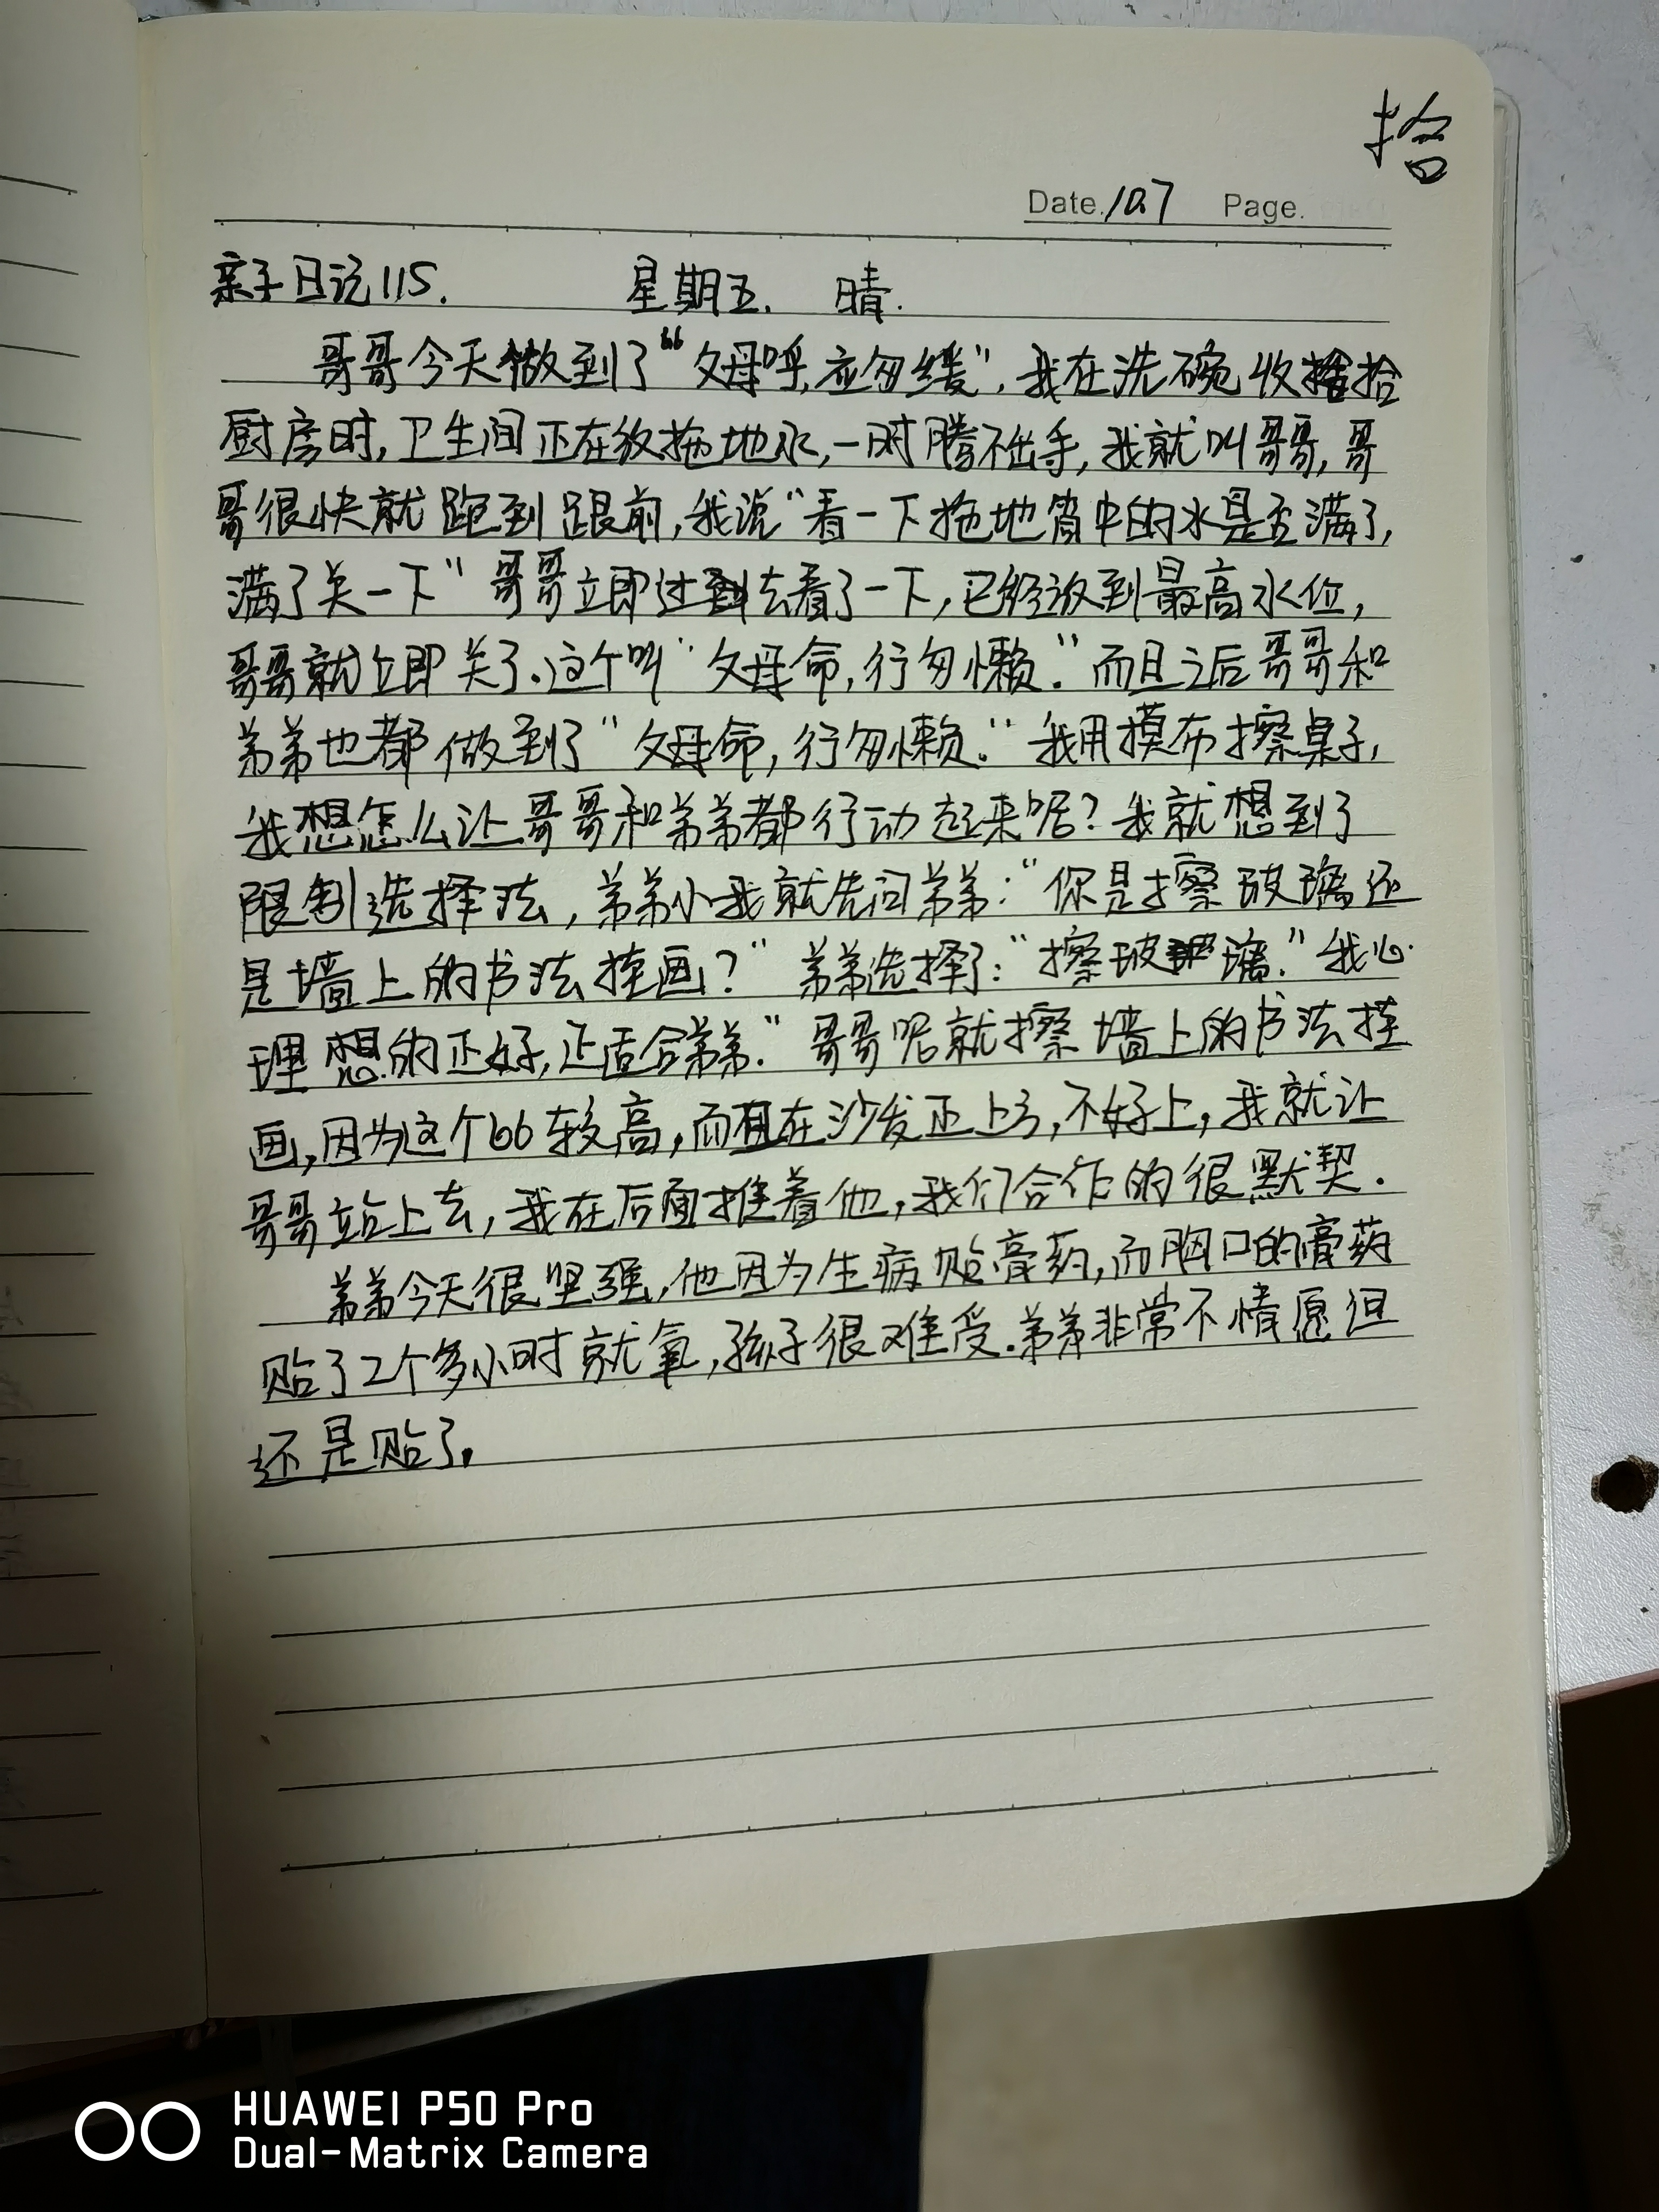 拾
Date.10.7 Page.
亲子日记115. 星期五. 晴.
哥哥今天做到了“父母呼,应勿缓”,我在洗碗收拾
厨房时,卫生间正在放拖地水,一时腾不出手,我就叫哥哥,哥
哥很快就跑到跟前,我说“看一下拖地筒中的水是否满了,
满了关一下”哥哥立即过去看了一下,已经放到最高水位,
哥哥就立即关了.这个叫“父母命,行勿懒.”而且之后哥哥和
弟弟也都做到了“父母命,行勿懒.”我用摸布擦桌子,
我想怎么让哥哥和弟弟都行动起来呢?我就想到了
限制选择法,弟弟小我就先问弟弟:“你是擦玻璃还
是墙上的书法挂画?”弟弟选择了:“擦玻璃.”我心
理想的正好,正适合弟弟.”哥哥呢就擦墙上的书法挂
画,因为这个比较高,而且在沙发正上方,不好上,我就让
哥哥站上去,我在后面推着他,我们合作的很默契.
弟弟今天很坚强,他因为生病贴膏药,而胸口的膏药
贴了2个多小时就氧,孩子很难受.弟弟非常不情愿但
还是贴了.
HUAWEI P50 Pro
Dual-Matrix Camera